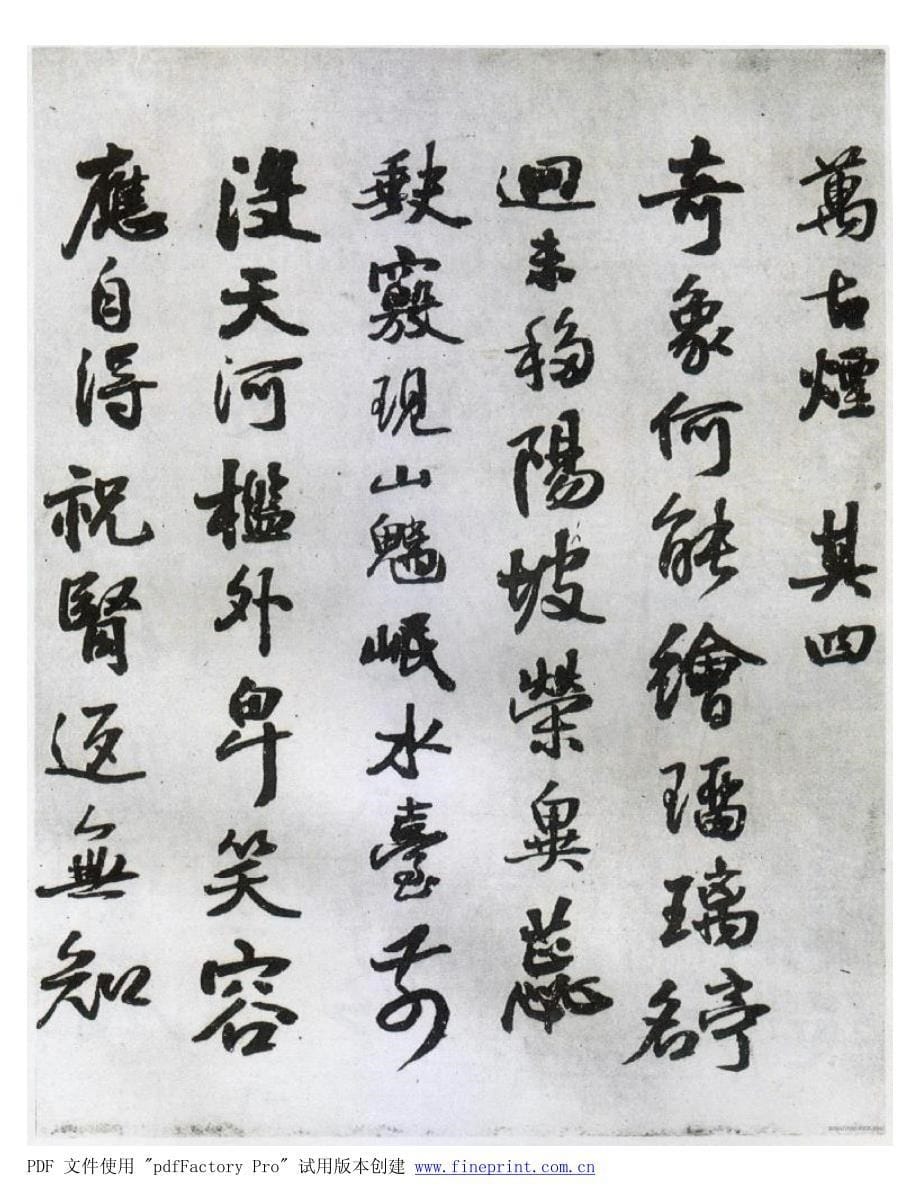 萬古煙 其四
奇象何能繪璢璃名亭
迴未移陽坡榮奧蕊
缺竅現山魑岷水臺前
沒天河檻外卑笑容
應自得祝腎返無知
PDF 文件使用 "pdfFactory Pro" 试用版本创建 www.fineprint.com.cn